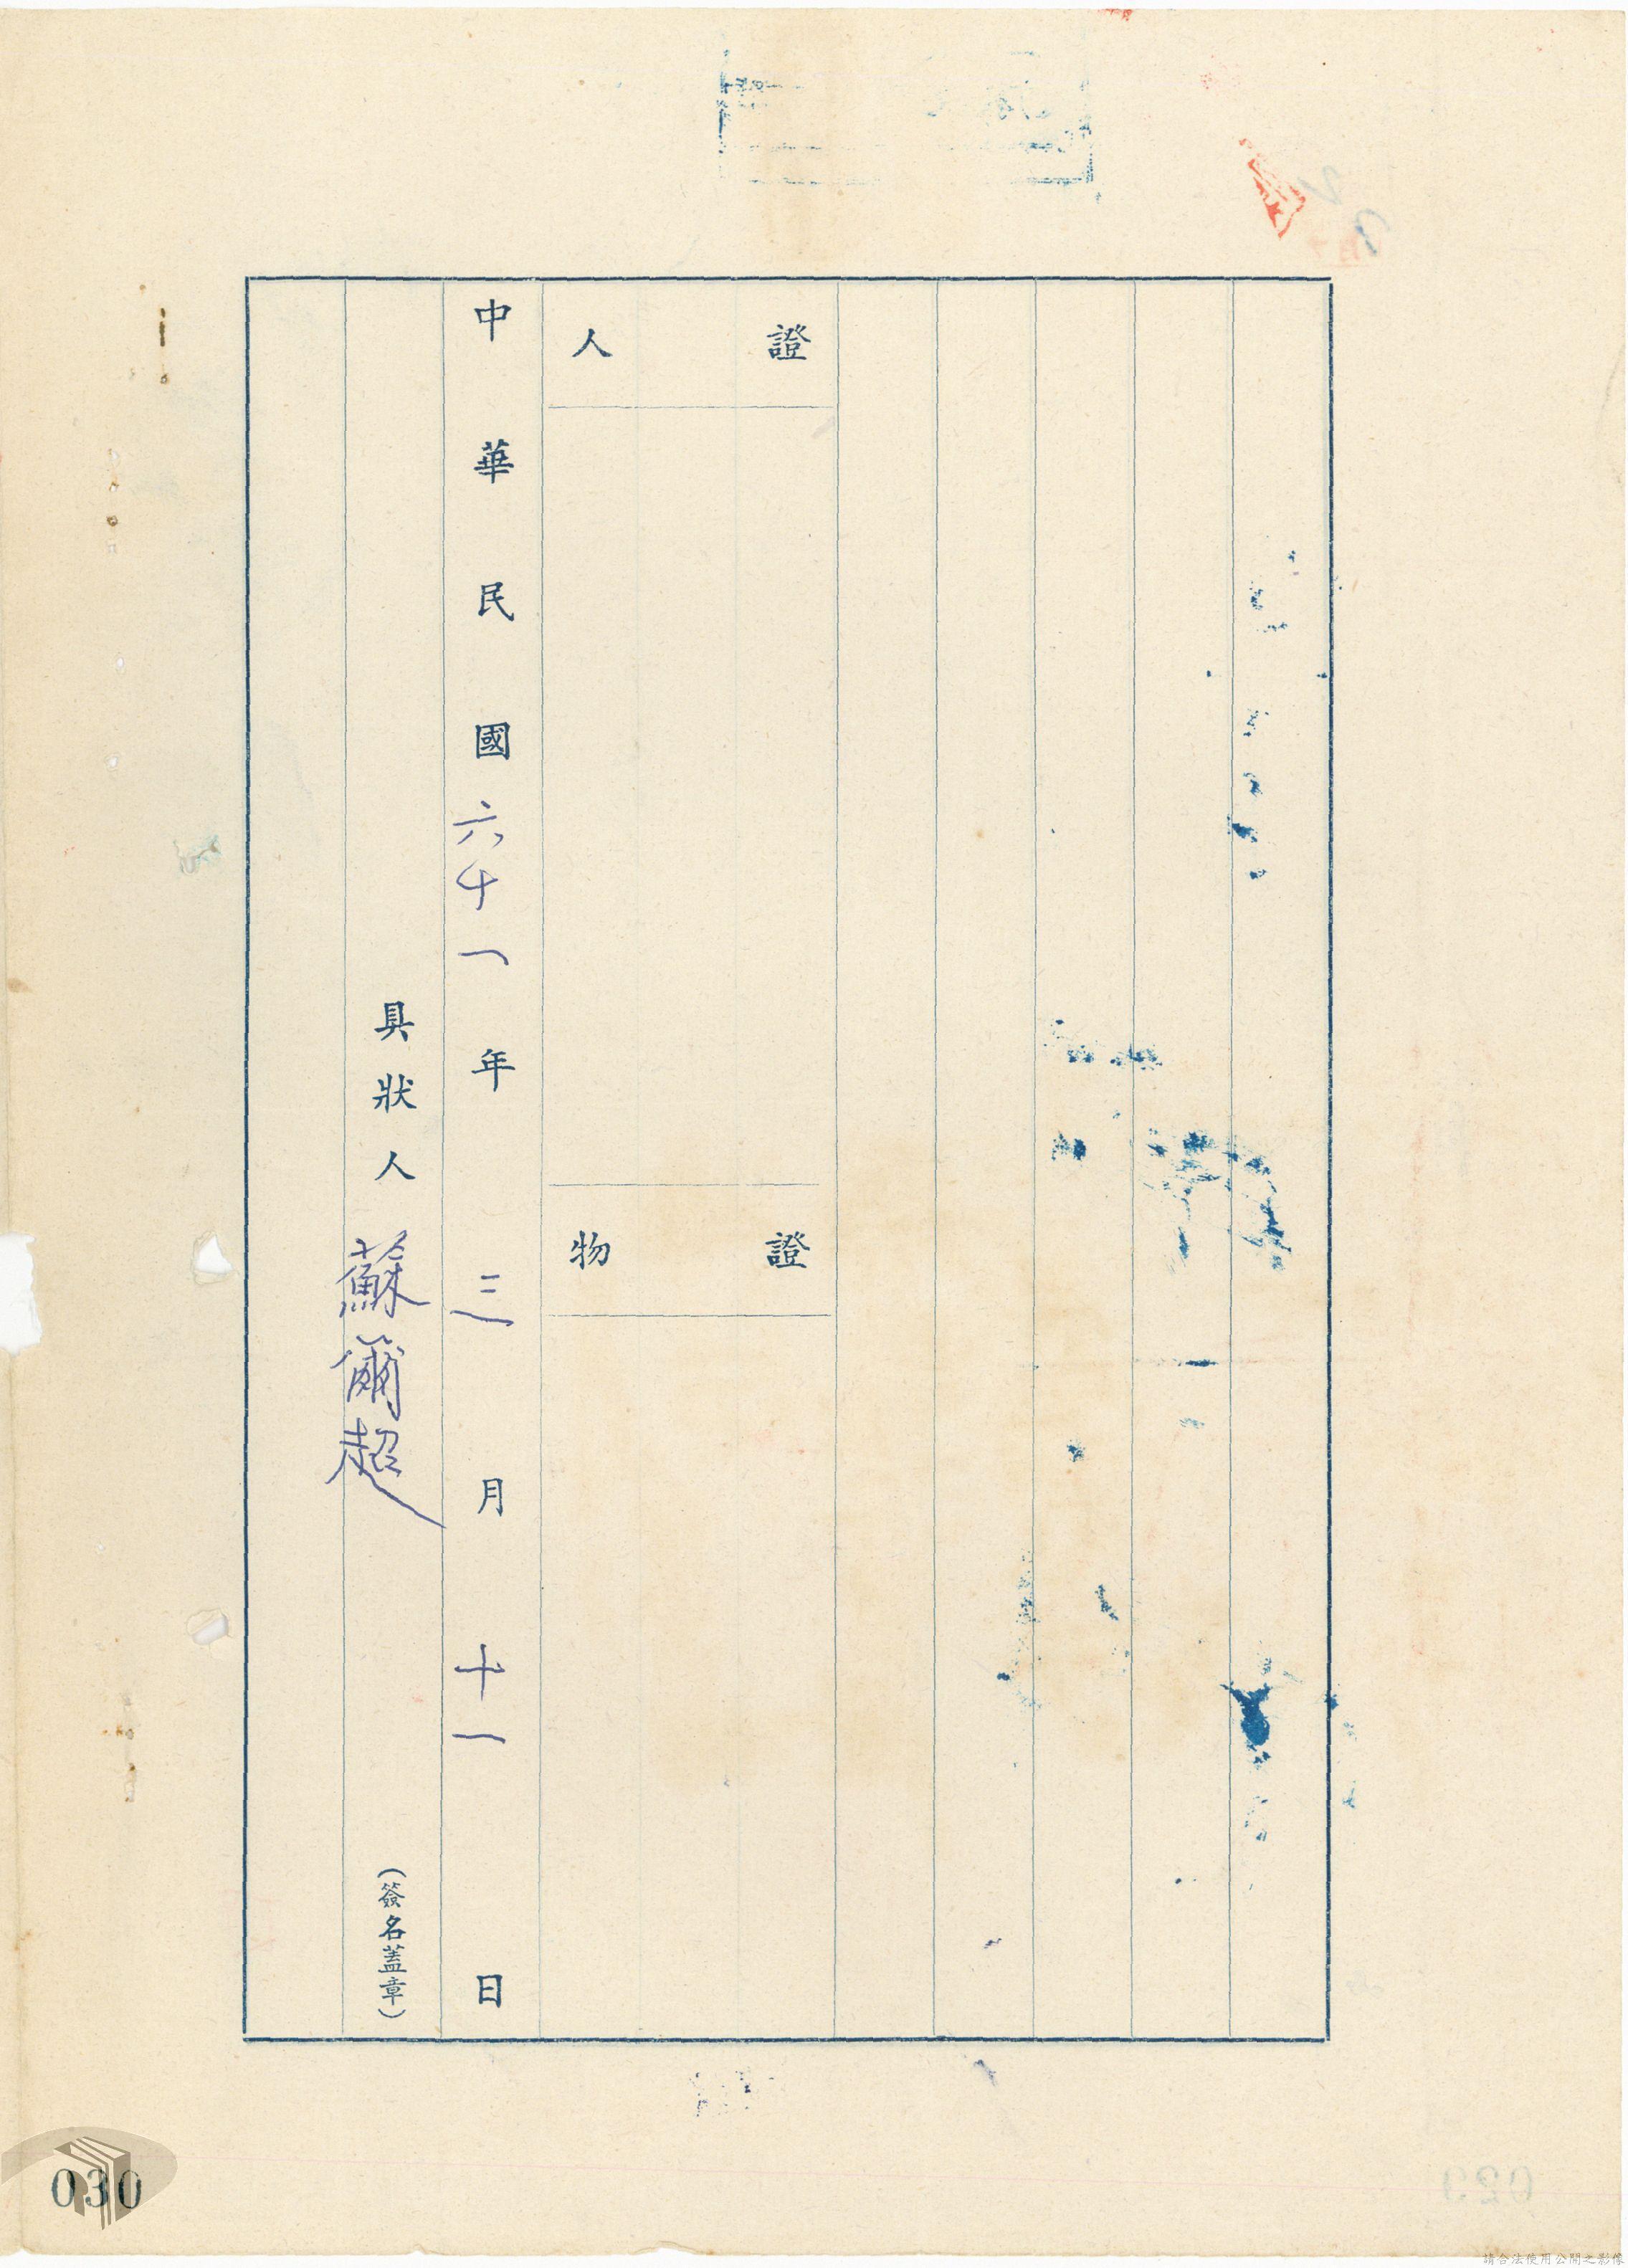 證人
證物
中華民國六十一年三月十一日
具狀人 蘇爾超 (簽名蓋章)
030
029
請合法使用公開之影像